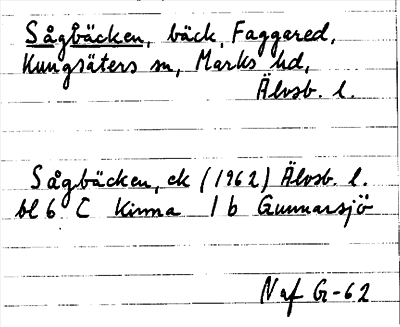 Sågbäcken, bäck, Faggared,
Kungsäters sn, Marks hd,
Älvsb. l.
Sågbäcken, ek (1962) Älvsb. l.
bl 6 C Kinna 1 b Gunnarsjö
Naf G-62